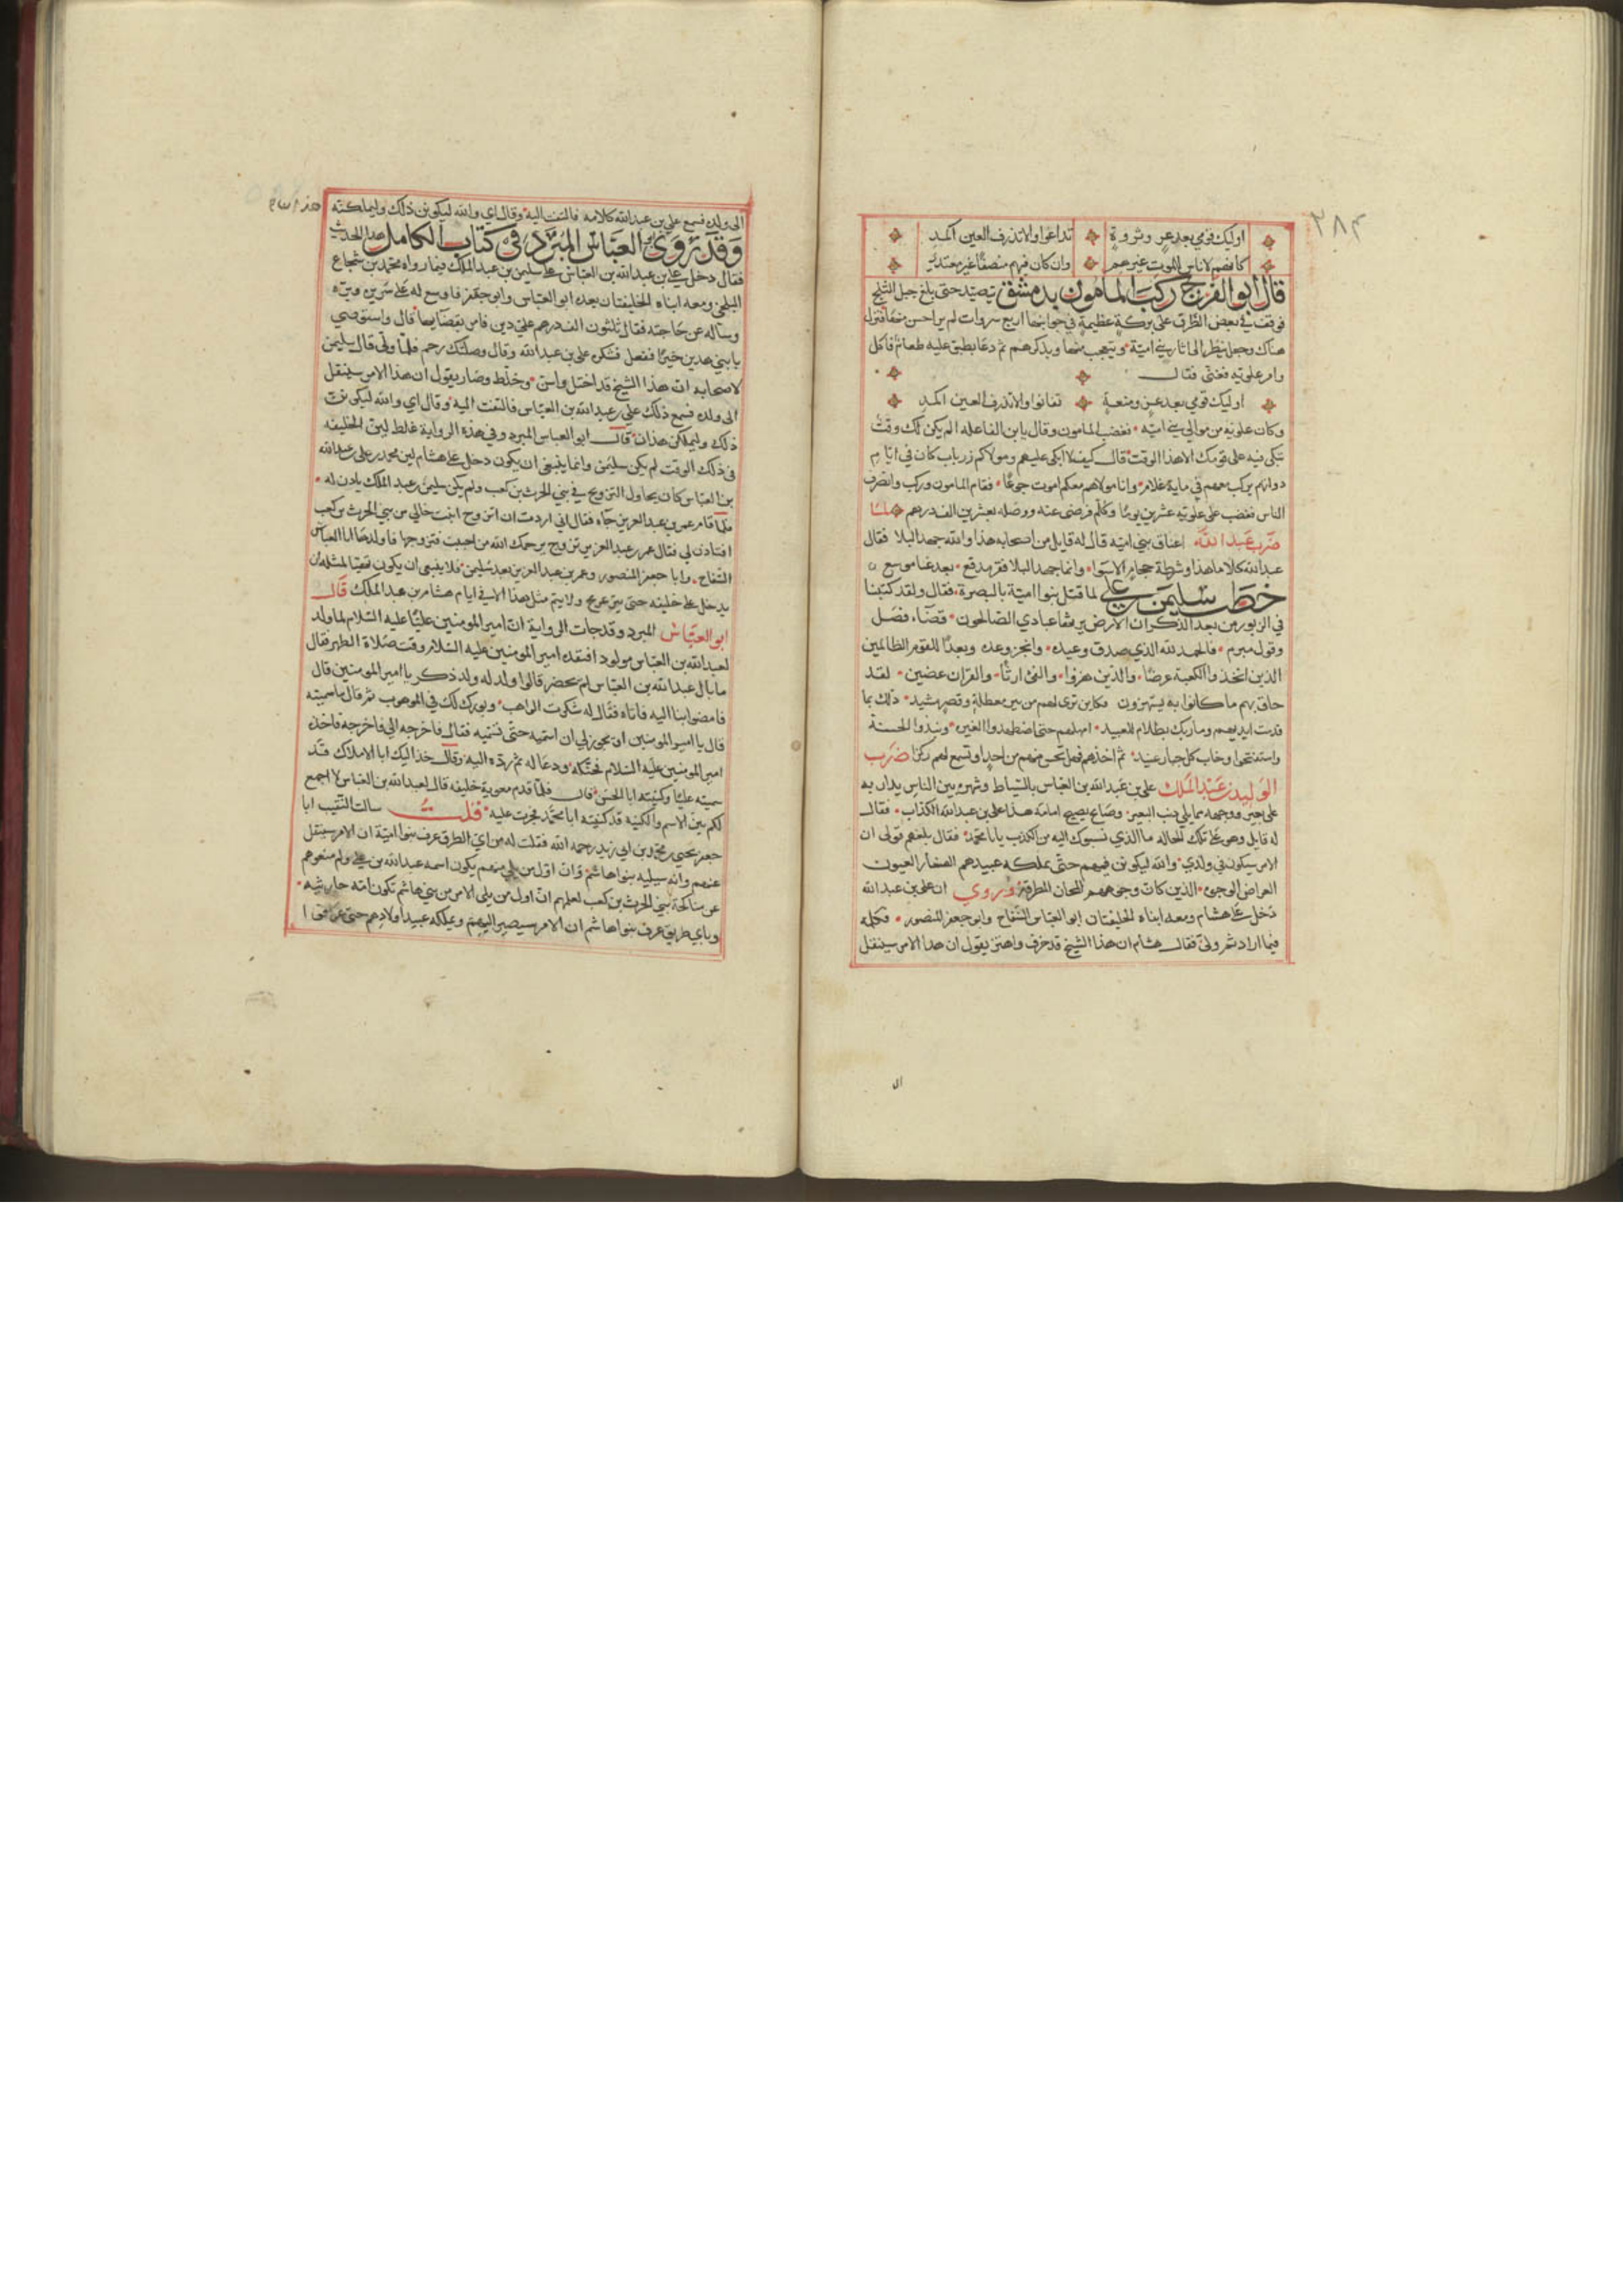 ٣٨٤
اوليك قومي بعد عز وثروة تداعوا والا تذرف العين اكمد
كانهم لا ناس للموت غيرهم وان كان فيهم منصفا غير معتد
قال ابو الفرج ركب المامون بدمشق يتصيد حتى بلغ جبل الثلج
فوقف في بعض الطرق على بركة عظيمة في جوانبها اربع سروات لم ير احسن منها فنزل
هناك وجعل ينظر الى اثار بني امية ويتعجب منها ويذكرهم ثم دعا بطبق عليه طعام فاكل
وامر علويه فغنى فقال
اوليك قومي بعد عز ومنعة تفانوا والا تذرف العين اكمد
وكان علويه من موالي بني امية فغضب المامون وقال يا بن الفاعله الم يكن لك وقت
تبكي فيه على قومك الا هذا الوقت قال كيف لا ابكي عليهم ومولاكم زرياب كان في ايام
دولتهم يركب معهم في ماية غلام وانا مولاهم معكم اموت جوعا فقام المامون وركب وانصرف
الناس فغضب على علويه عشرين يوما وكلم فرضى عنه ووصله بعشرين الف درهم لما
ضرب عبد الله اعناق بني امية قال له قايل من اصحابه هذا والله جهد البلا فقال
عبد الله كلا ما هذا وشرطة حجام الا سوا وانما جهد البلا فقر مدقع بعد غنا موسع
خطب سليمن بن علي لما قتل بنوا امية بالبصرة فقال ولقد كتبنا
في الزبور من بعد الذكر ان الارض يرثها عبادي الصالحون قضاء فصل
وقول مبرم فالحمد لله الذي صدق وعيده وانجز وعده وبعدا للقوم الظالمين
الذين اتخذوا الكعبة عرضا والدين هزوا والفئ ارثا والقران عضين لقد
حاق بهم ما كانوا به يستهزون فكاين ترى لهم من بئر معطلة وقصر مشيد ذلك بما
قدمت ايديهم وما ربك بظلام للعبيد امهلهم حتى اضطهدوا العترة ونبذوا السنة
واستفتحوا وخاب كل جبار عنيد ثم اخذهم فهل تحس منهم من احد او تسمع لهم ركزا ضرب
الوليد بن عبد الملك علي بن عبد الله بن العباس بالسياط وشهره بين الناس يدار به
على بعير ووجهه مما يلي ذنب البعير وصايح يصيح امامه هذا علي بن عبد الله الكذاب فقال
له قايل وهو على تلك الحالة ما الذي نسبوك اليه من الكذب يا ابا محمد فقال بلغهم قولي ان
الامر سيكون في ولدي والله ليكونن فيهم حتى يملكه عبيدهم الصغار العيون
العراض الوجوه الذين كان وجوههم المجان المطرقة وروي ان علي بن عبد الله
دخل على هشام ومعه ابناه الخليفتان ابو العباس السفاح وابو جعفر المنصور فكلمه
فيما اراد ثم ولى فقال هشام ان هذا الشيخ قد خرف واهتر يقول ان هذا الامر سينقل
ال
الى ولده فسمع علي بن عبد الله كلامه فالتفت اليه وقال اي والله ليكونن ذلك وليملكنه
وقد روى ابو العباس المبرد في كتاب الكامل هذا الحديث
فقال دخل علي بن عبد الله بن العباس على سليمن بن عبد الملك فيما رواه محمد بن شجاع
البلخي ومعه ابناه الخليفتان بعده ابو العباس وابو جعفر فاوسع له على سريره وبره
وساله عن حاجته فقال ثلثون الف درهم على دين فامر بقضايها قال واستوصي
بابني هذين خيرا ففعل فشكره علي بن عبد الله وقال وصلتك رحم فلما ولى قال سليمن
لاصحابه ان هذا الشيخ قد اختل واسن وخلط وصار يقول ان هذا الامر سينقل
الى ولده فسمع ذلك علي بن عبد الله بن العباس فالتفت اليه وقال اي والله ليكونن
ذلك وليملكن هذان قال ابو العباس المبرد وفي هذه الرواية غلط لان الخليفه
في ذلك الوقت لم يكن سليمن وانما ينبغي ان يكون دخل على هشام لان محمد بن علي بن عبد الله
بن العباس كان يحاول التزويج في بني الحرث بن كعب ولم يكن سليمن بن عبد الملك ياذن له
فلما قام عمر بن عبد العزيز جاه فقال اني اردت ان اتزوج ابنت خالي من بني الحرث بن كعب
افتاذن لي فقال عمر بن عبد العزيز تزوج يرحمك الله من احببت فتزوجها فاولدها ابا العباس
السفاح وابا جعفر المنصور وعمر بن عبد العزيز بعد سليمن فلا ينبغي ان يكون تهيا لمثله ان
يدخل على خليفه حتى يترعرع ولا يتم مثل هذا الا في ايام هشام بن عبد الملك قال
ابو العباس المبرد وقد جات الرواية ان امير المومنين عليا عليه السلام لما ولد
لعبد الله بن العباس مولود افتقده امير المومنين عليه السلام وقت صلاة الظهر فقال
ما بال عبد الله بن العباس لم يحضر قالوا ولد له ولد ذكر يا امير المومنين قال
فامضوا بنا اليه فاتاه فقال له شكرت الواهب وبورك لك في الموهوب ثم قال ما سميته
قال يا امير المومنين او يجوز لي ان اسميه حتى تسميه فقال فاخرجه الي فاخرجه فاخذه
امير المومنين عليه السلام فحنكه ودعا له ثم رده اليه وقال خذ اليك ابا الاملاك قد
سميته عليا وكنيته ابا الحسن قال فلما قدم معوية خليفه قال لعبد الله بن العباس لا اجمع
لكم بين الاسم والكنيه قد كنيته ابا محمد فجرت عليه قلت سالت النقيب ابا
جعفر يحيى بن محمد بن ابي زيد رحمه الله فقلت له من اي الطرق عرف بنوا امية ان الامر سينتقل
عنهم وانه سيليه بنوا هاشم وان اول من يلي منهم يكون اسمه عبد الله ولم منعوهم
عن مناكحة بني الحرث بن كعب لعلمهم ان اول من يلي الامر من بني هاشم تكون امه حارثيه
وباي طريق عرف بنوا هاشم ان الامر سيصير اليهم ويملكه عبيد اولادهم حتى